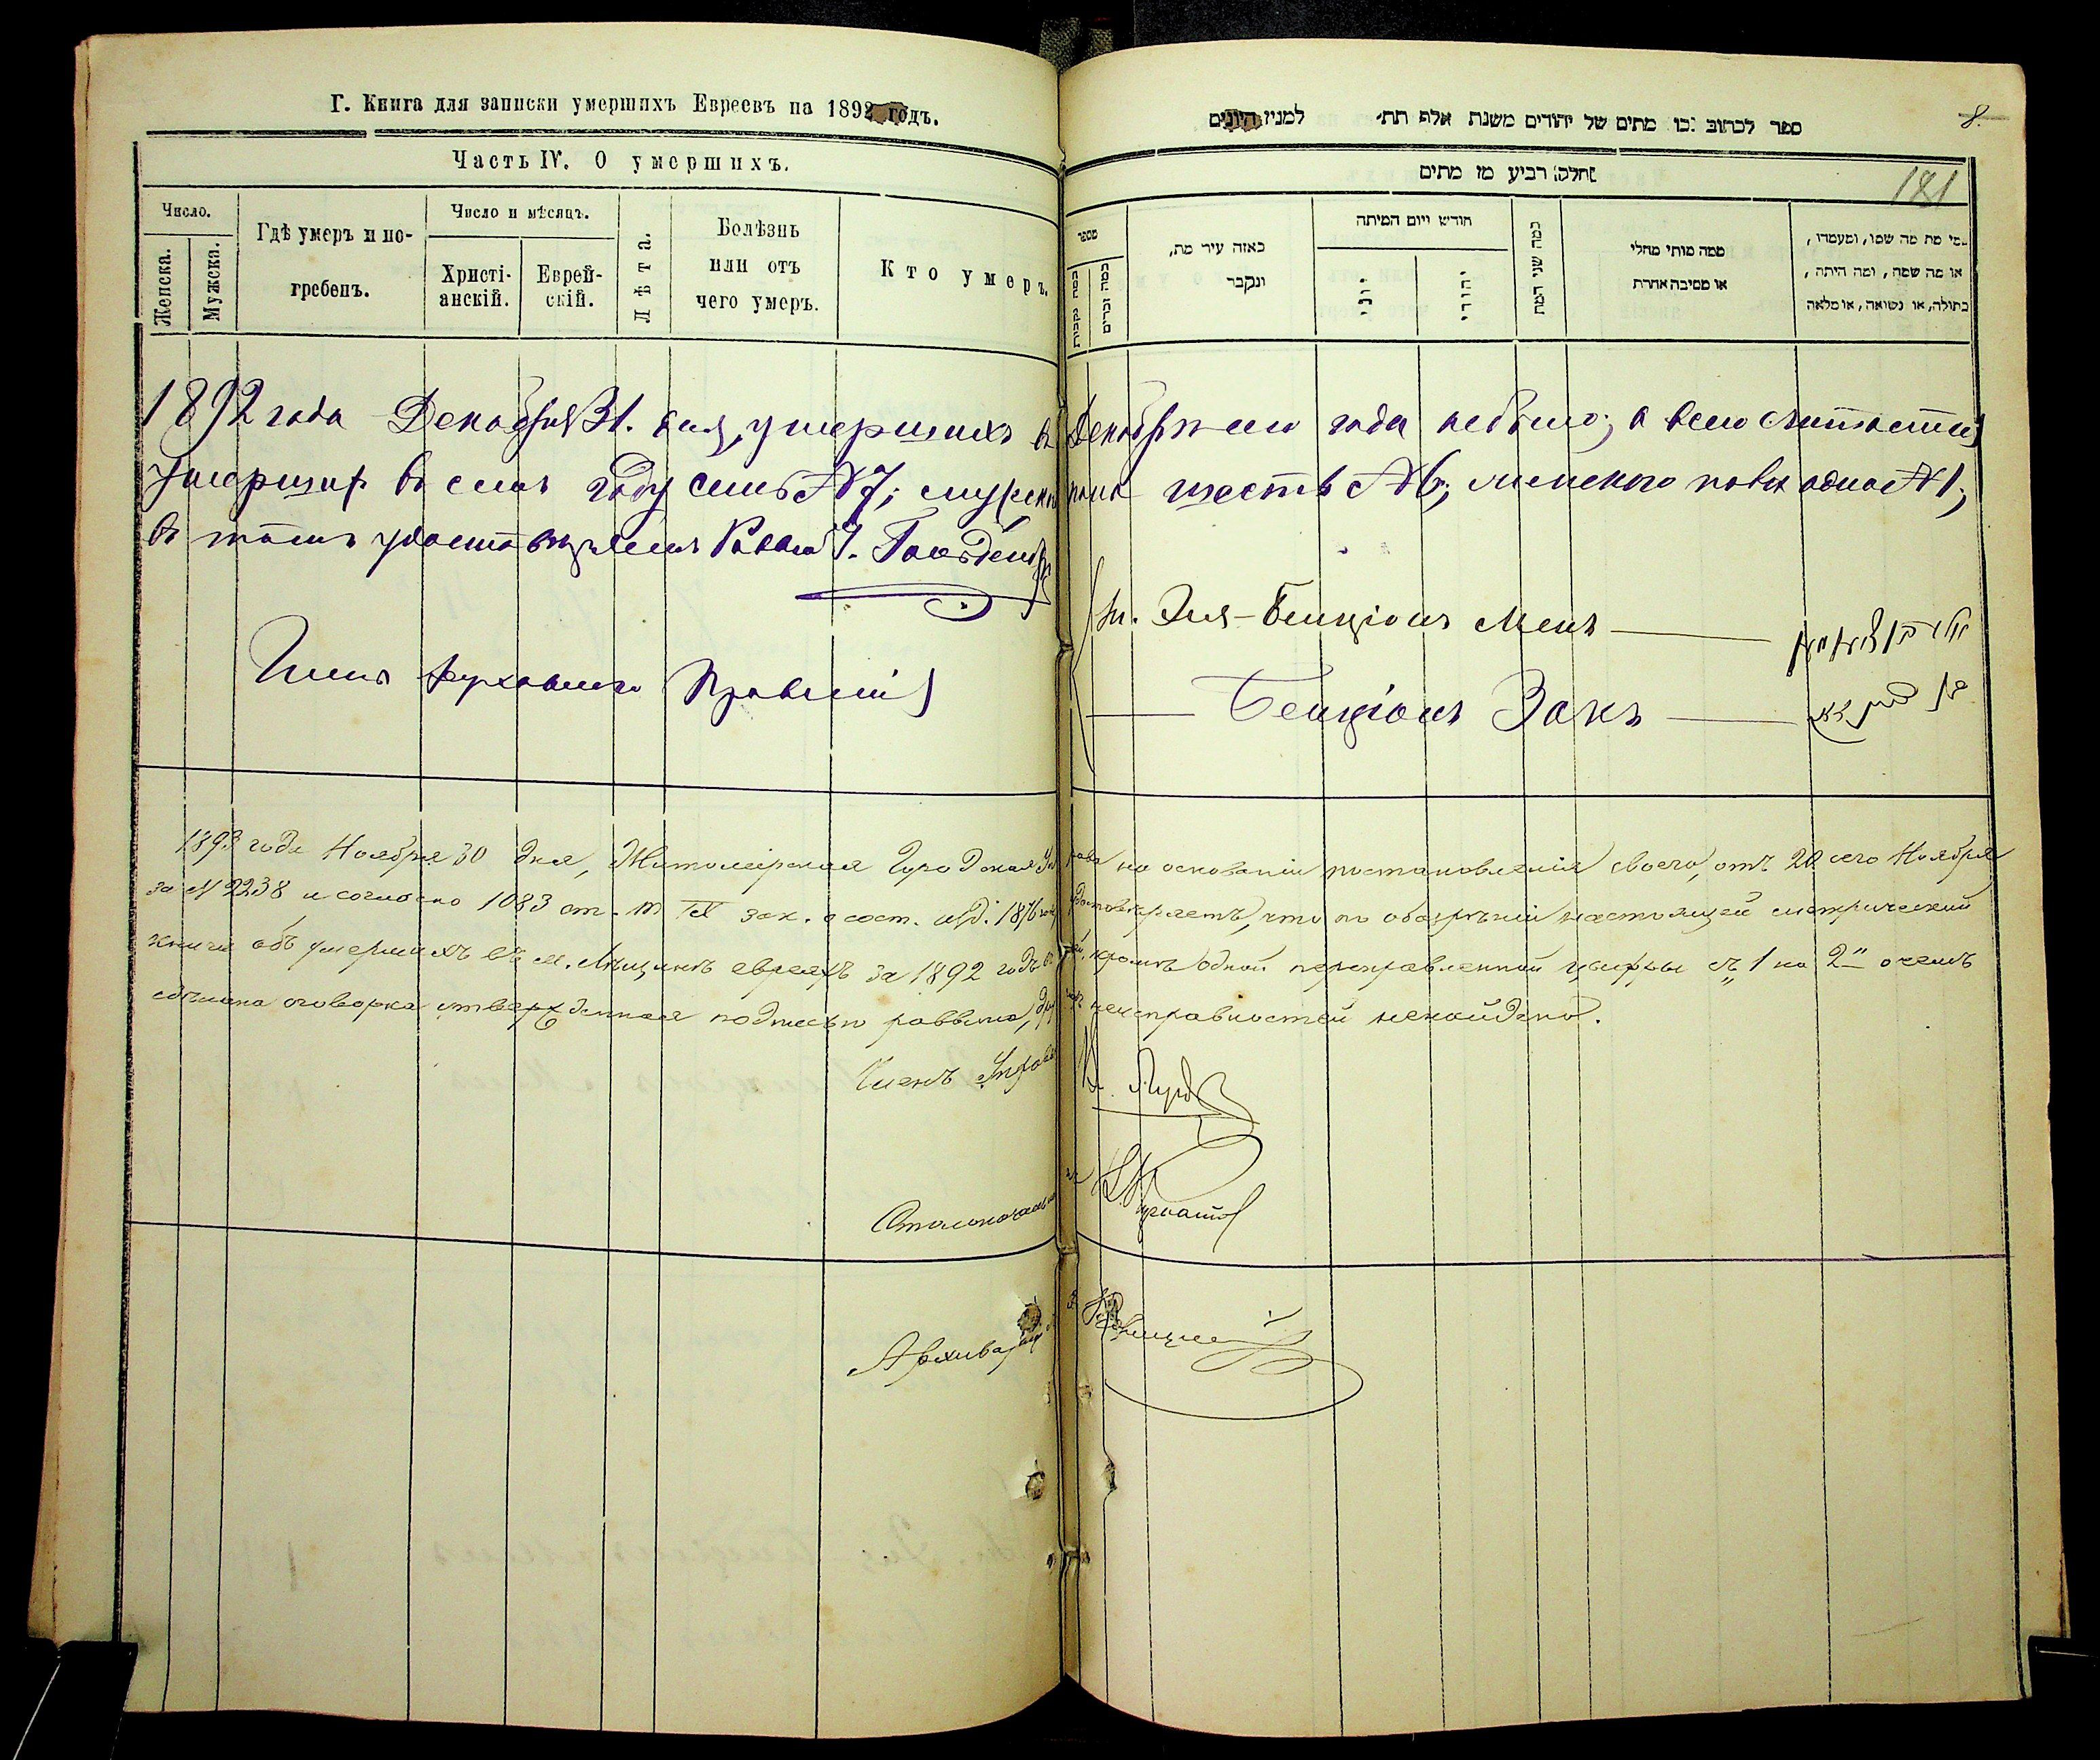 Г. Книга для записки умершихъ Евреевъ на 1892 годъ.
Часть IV. О умершихъ.
Число.
Женска.
Мужска.
Гдѣ умеръ и по-
гребенъ.
Число и мѣсяцъ.
Христі-
анскій.
Еврей-
скій.
Лѣта.
Болѣзнь
или отъ
чего умеръ.
Кто умеръ.
8.
ספר לכתוב בו מתים של יהודים משנת אלף תת׳ למנין היונים
חלק רביע מן מתים
181
מספר
כמה נקבות
כמה זכרים
באזה עיר מת,
ונקבר
חודש ויום המיתה
יוני
יהודי
כמה שני המת
ממה מותו מחלי
או מסיבה אחרת
מי מת מה שמו, ומעמדו,
או מה שמה, ומה היתה,
בתולה, או נשואה, או מלאה
1892 года Декабря 31. дня, умершихъ въ Декабрѣ сего года не было; а всего
умершихъ въ семъ году семь №7; мужска пола шесть №6; женского пола одна №1;
въ томъ удостовѣряемъ Раввинъ
Члены духовнаго Правленія
Эля-Бенціонъ
Бенціонъ Закъ
1893 года Ноября 30 дня, Житомірская Городская Управа на основаніи постановленія своего, отъ 20 сего Ноября
за № 2238 и согласно 1083 ст. т. IX зак. о сост. изд. 1876 года удостовѣряетъ, что по обозрѣніи настоящей метрической
книги объ умершихъ въ м. Лещинѣ евреяхъ за 1892 годъ въ ней, кромѣ одной переправленной цыфры съ „1 на 2" о чемъ
сдѣлана оговорка утвержденная подписью раввина, других неисправностей ненайдено.
Членъ Управы
Столоначальникъ
Архиваріусъ